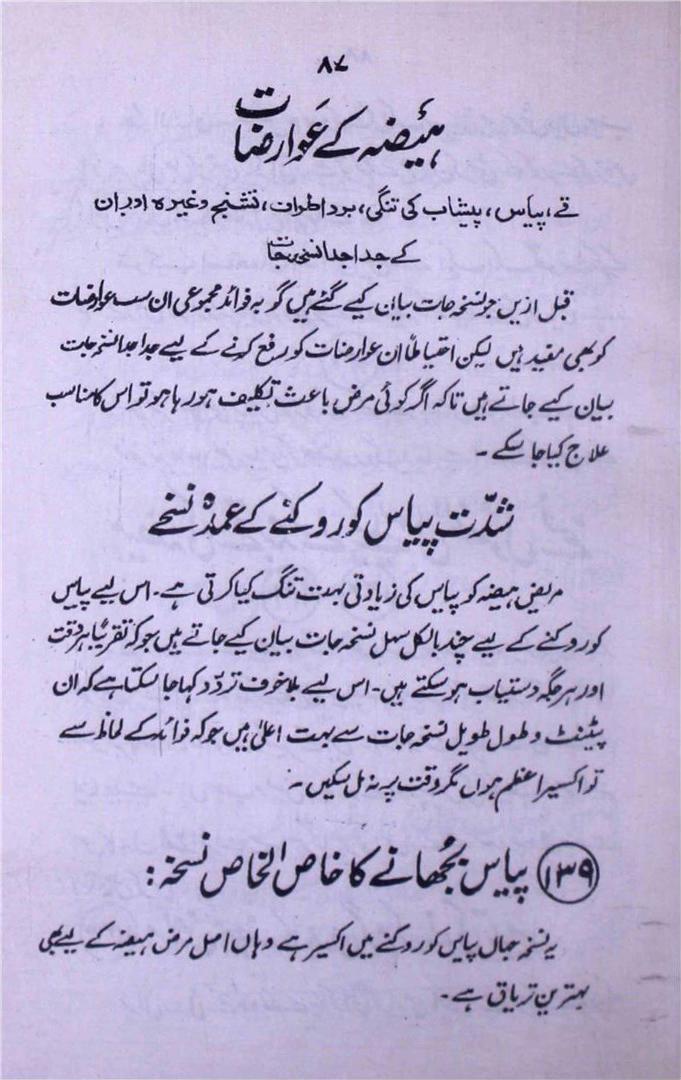 ۸۷
ہیضہ کے عوارضات
قے، پیاس، پیشاب کی تنگی، برد اطراف، تشنج وغیرہ اور ان
کے جدا جدا نسخہ جات
قبل ازیں جو نسخہ جات بیان کیے گئے ہیں گو بہ فوائد مجموعی ان سب عوارضات
کو بھی مفید ہیں لیکن احتیاطاً ان عوارضات کو رفع کرنے کے لیے جدا جدا نسخہ جات
بیان کیے جاتے ہیں تاکہ اگر کوئی مرض باعث تکلیف ہو رہا ہو تو اس کا مناسب
علاج کیا جا سکے ۔
شدّت پیاس کو روکنے کے عمدہ نسخے
مریض ہیضہ کو پیاس کی زیادتی بہت تنگ کیا کرتی ہے ۔ اس لیے پیاس
کو روکنے کے لیے چند بالکل سہل نسخہ جات بیان کیے جاتے ہیں جو کہ تقریباً ہر وقت
اور ہر جگہ دستیاب ہو سکتے ہیں ۔ اس لیے بلا خوف تردّد کہا جا سکتا ہے کہ ان
پیٹنٹ و طول طویل نسخہ جات سے بہت اعلیٰ ہیں جو کہ فوائد کے لحاظ سے
تو اکسیر اعظم ہوں مگر وقت پر نہ مل سکیں ۔
۱۳۹ پیاس بجُھانے کا خاص الخاص نسخہ :
یہ نسخہ جہاں پیاس کو روکنے میں اکسیر ہے وہاں اصل مرض ہیضہ کے لیے بھی
بہترین تریاق ہے ۔